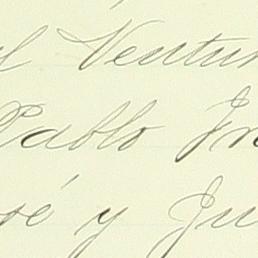 l Ventur
Pablo Jn
sé y Ju